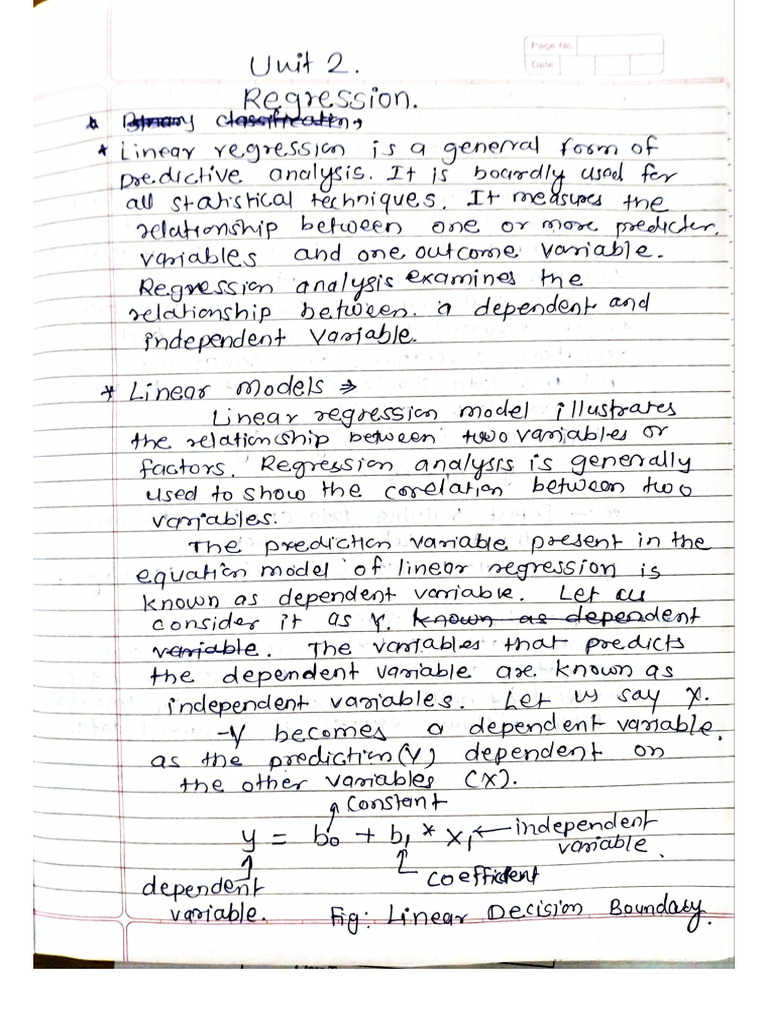 Page No.
Date
Unit 2.
Regression.
* Binary classification,
* Linear regression is a general form of
predictive analysis. It is boardly used for
all statistical techniques. It measures the
relationship between one or more predicter.
variables and one outcome variable.
Regression analysis examines the
relationship between a dependent and
independent variable.
* Linear Models ⇒
Linear regression model illustrates
the relationship between two variables or
factors. Regression analysis is generally
used to show the corelation between two
variables.
The prediction variable present in the
equation model of linear regression is
known as dependent variable. Let us
consider it as Y. known as dependent
variable. The variables that predicts
the dependent variable are known as
independent variables. Let us say X.
-Y becomes a dependent variable.
as the prediction (Y) dependent on
the other variables (X).
constant
y = b0 + b1 * x1 ← independent
variable.
coefficient
dependent
variable.
Fig: Linear Decision Boundary.